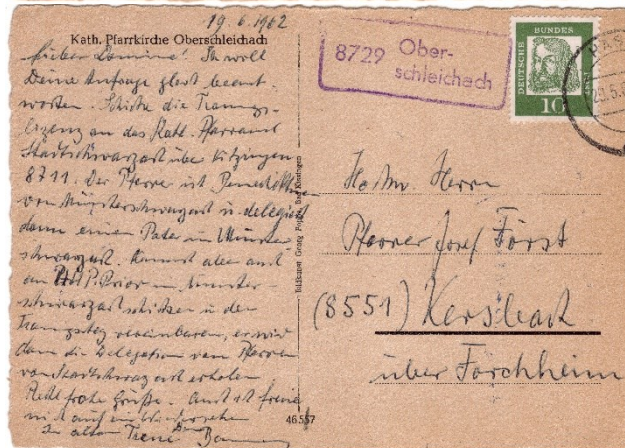 19.6.1962
Kath. Pfarrkirche Oberschleichach
Lieber Domine! Ich will
Deine Anfrage gleich beant-
worten. Schicke die Trauungs-
an das Kath. Pfarramt
Stadtschwarzach über Kitzingen
8711. Der Pfarrer ist Benediktiner
von Münsterschwarzach u. delegiert
dann einen Pater in Münster-
schwarzach. Kannst aber auch
an P. Prior in Münster-
schwarzach schicken u. den
Trauungstag vereinbaren, er wird
dann die Delegation vom Pfarrer
von Stadtschwarzach erholen
Recht frohe Grüße.
auf ein Wiedersehen
In alter Treue Dein
Bildkunst Georg Bad Kissingen
46 557
8729 Ober-
schleichach
DEUTSCHE BUNDES
10
Hochw. Herrn
Pfarrer Josef Först
(8551) Kersbach
über Forchheim